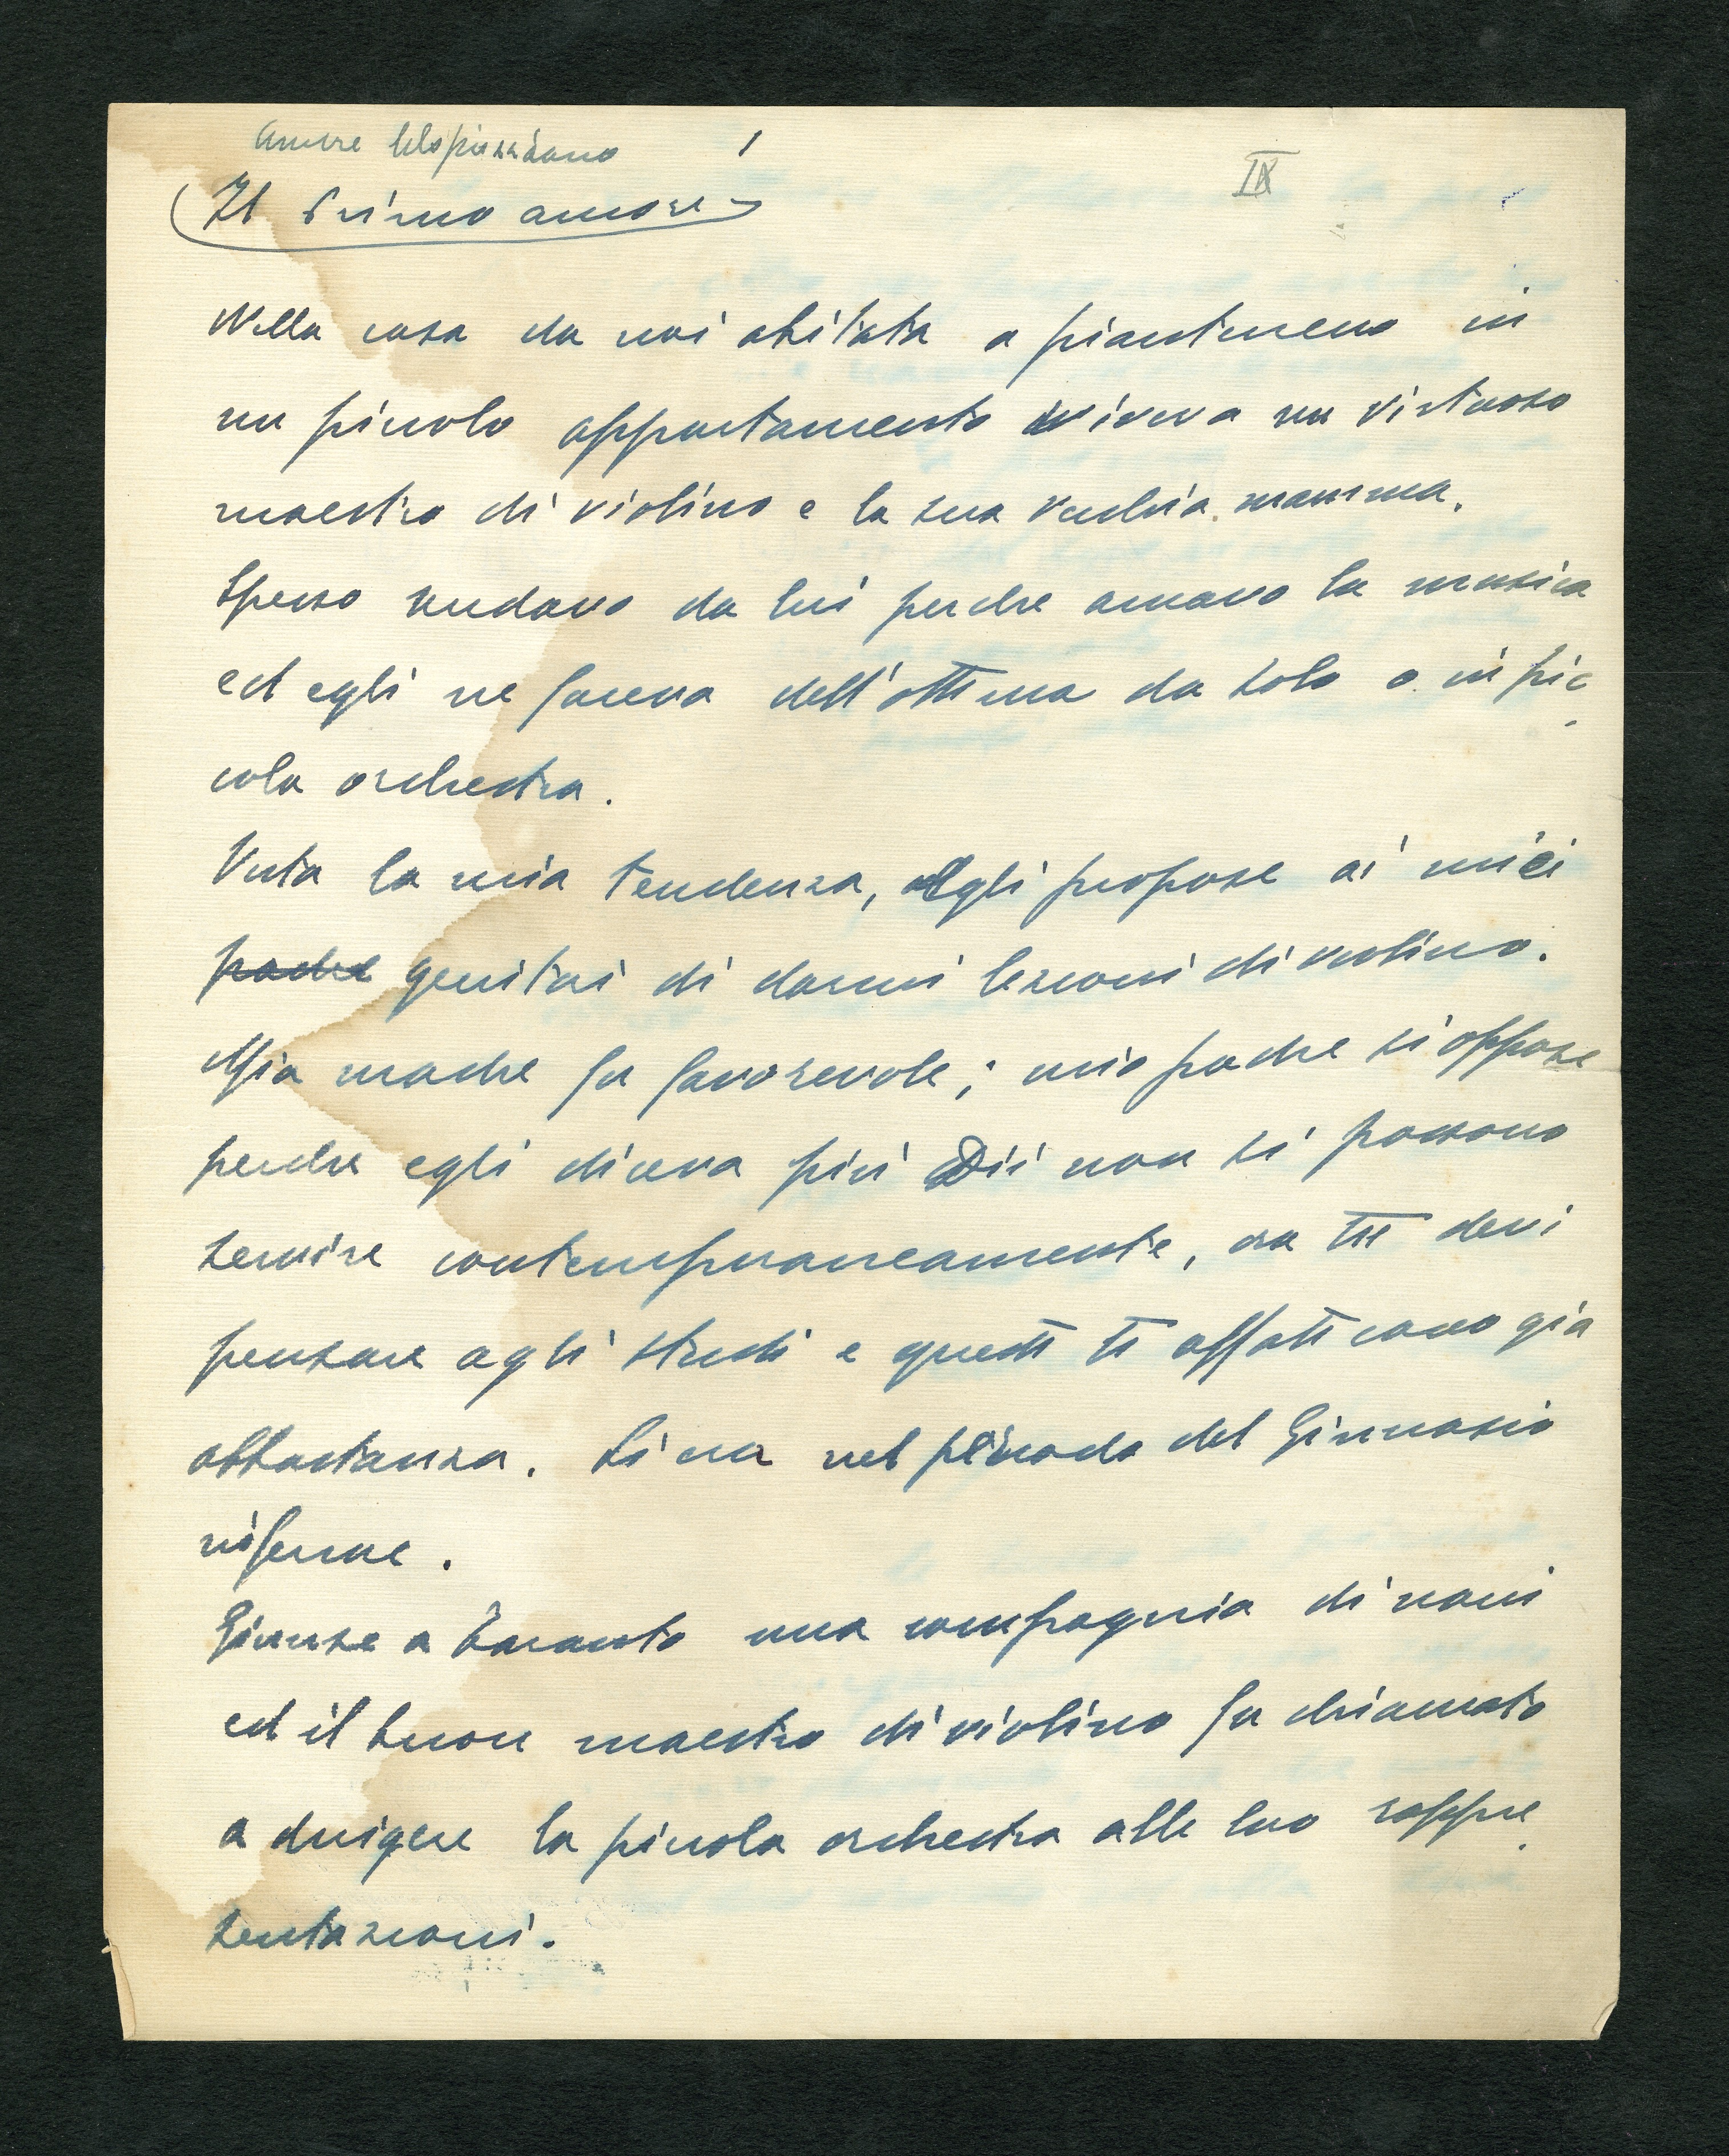 Amore lillipuziano 1 IX
(Il primo amore)
Nella casa da noi abitata a pianterreno in
un piccolo appartamento viveva un virtuoso
maestro di violino e la sua vecchia mamma.
Spesso andavo da lui perche amavo la musica
ed egli ne faceva dell'ottima da solo o in pic
cola orchestra.
Vista la mia tendenza, egli propose ai miei
padre genitori di darmi lezioni di violino.
Mia madre fu favorevole; mio padre si oppose
perche egli diceva più Dii non si possono
servire contemporaneamente, ora tu devi
pensare agli studi e questi ti affaticano già
abbastanza. Si era nel periodo del Ginnasio
inferiore.
Giunse a Taranto una compagnia di nani
ed il buon maestro di violino fu chiamato
a dirigere la piccola orchestra alle loro rappre
sentazioni.